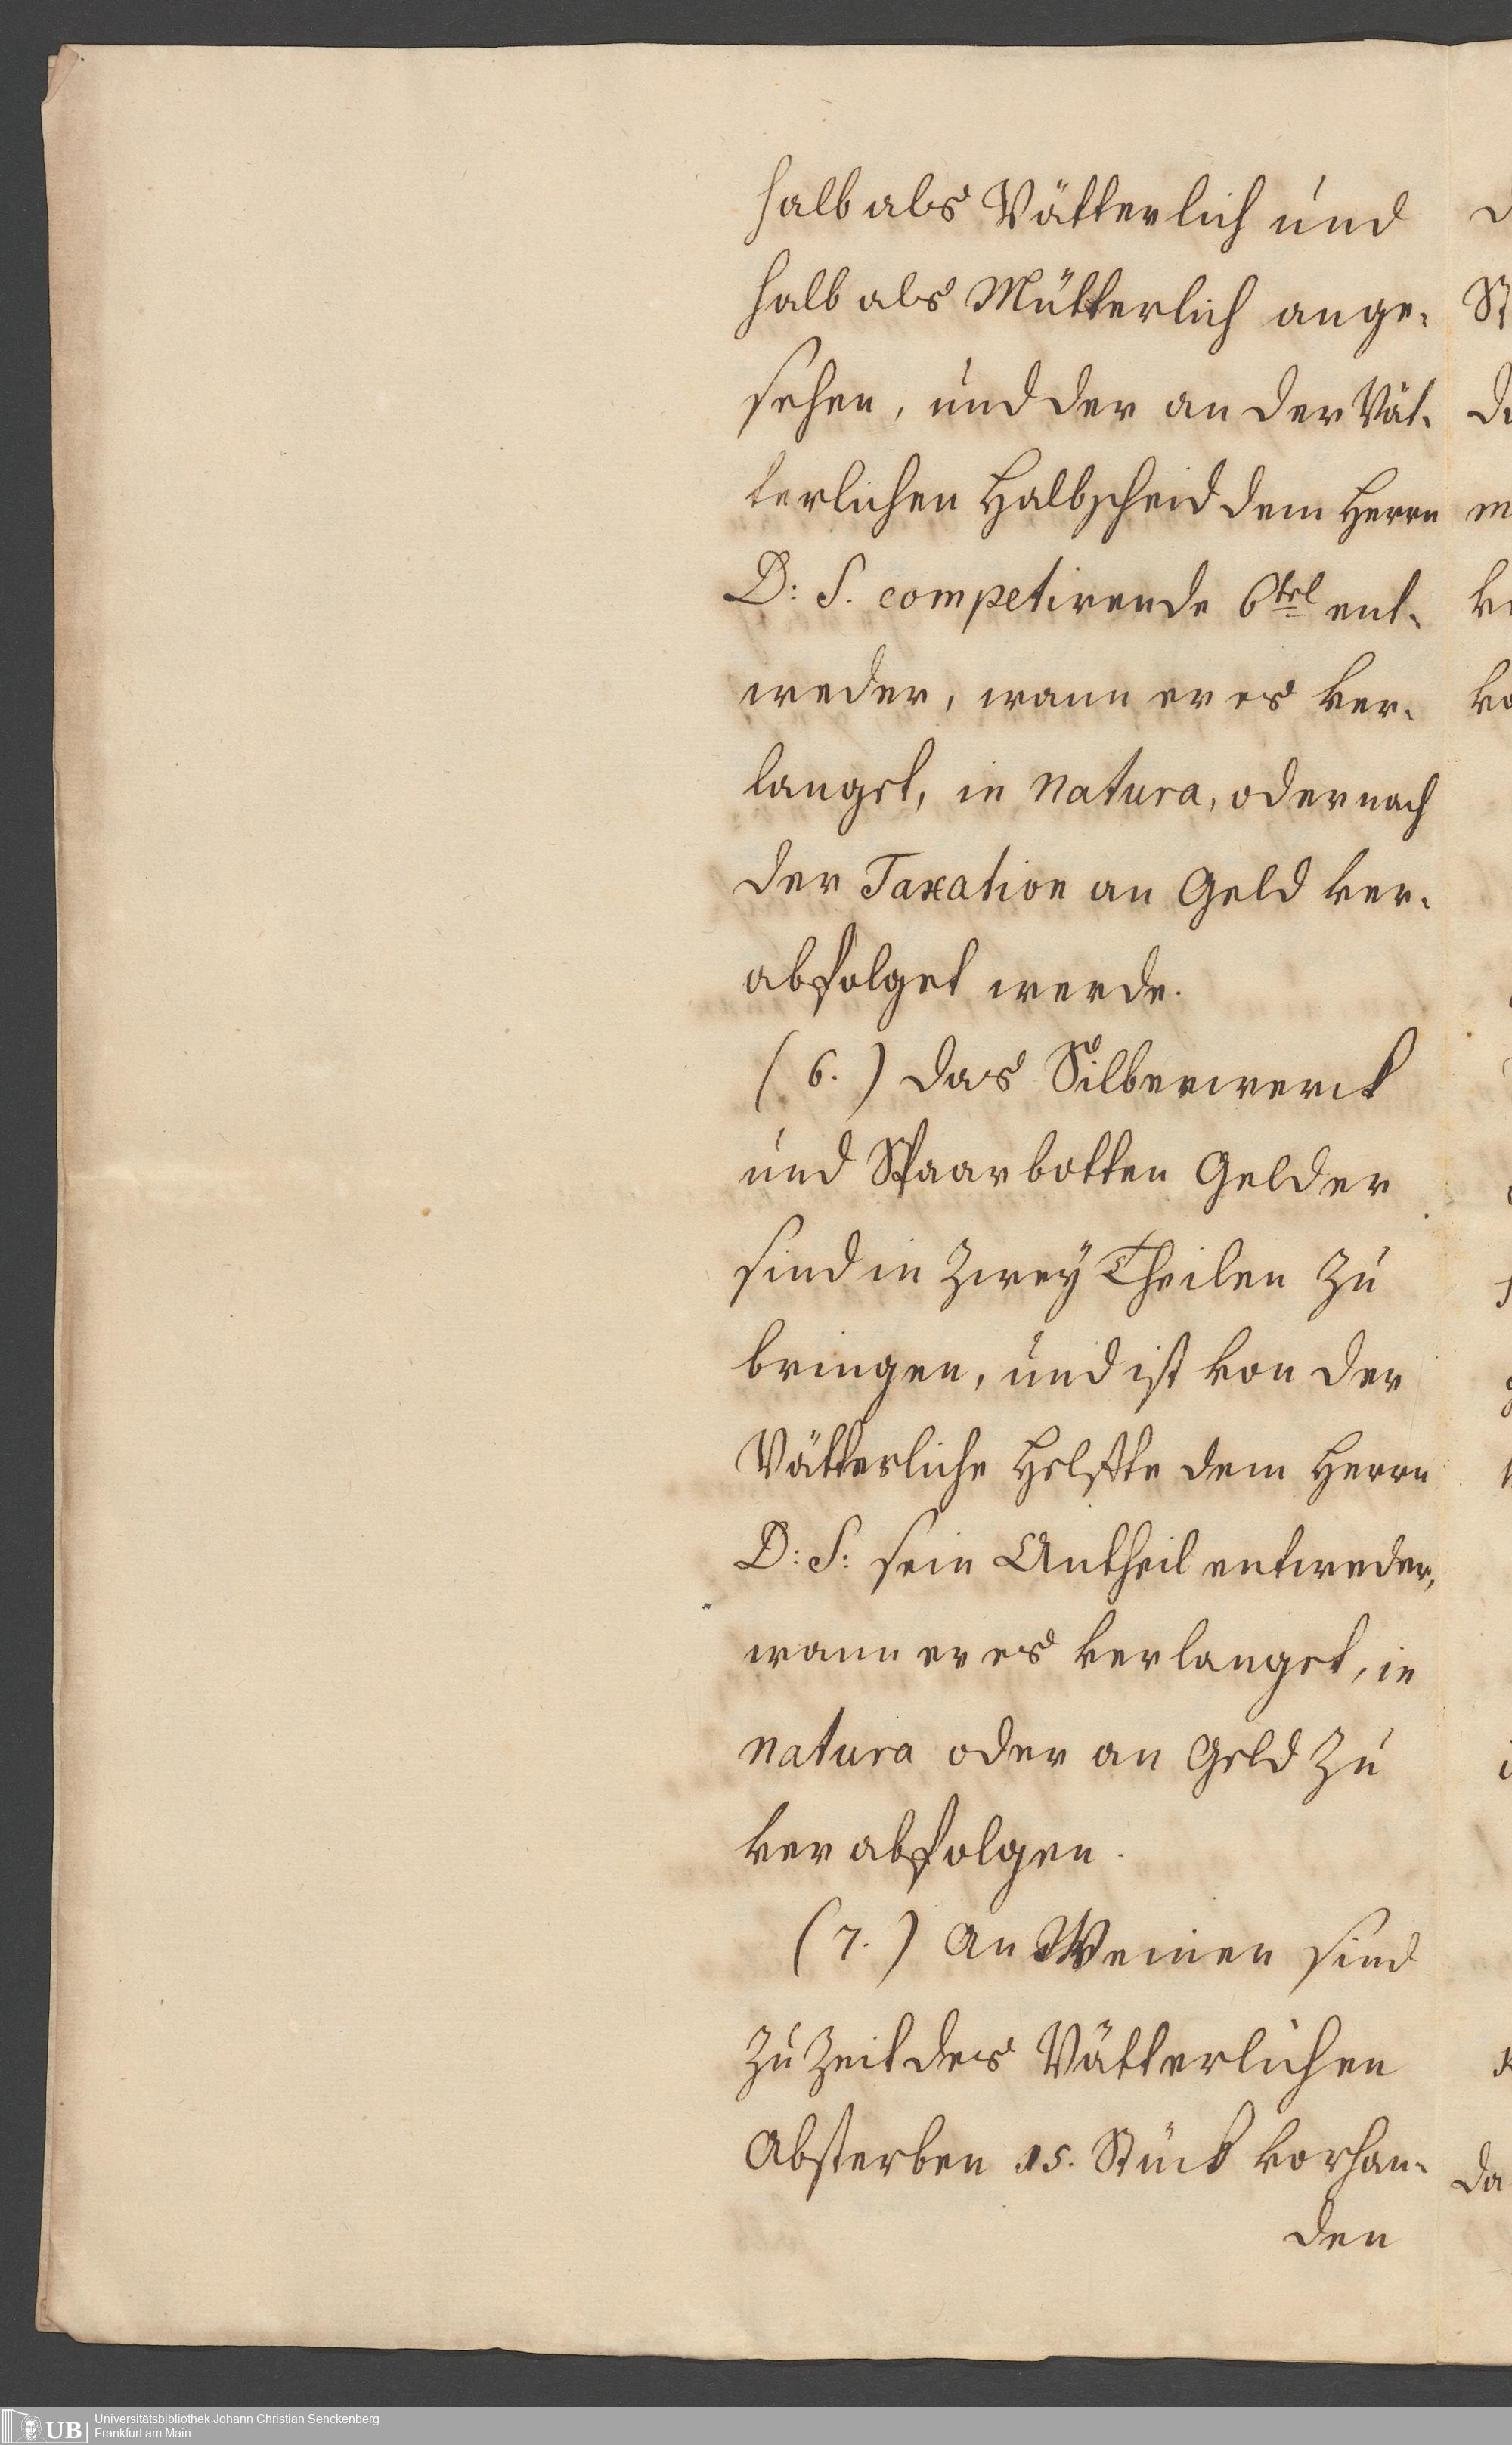 halb als Vätterlich und
halb als Mütterlich ange-
sehen, und der an der Vät-
terlichen Halbscheid dem Herrn
D: S. competirende 6tel ent-
weder, wann er es ver-
langet, in natura, oder nach
der Taxation an Geld ver-
abfolget werde.
(6.) das Silberwerck
und Spaarbotten Gelder
sind in zwey Theilen zu
bringen, und ist von der
Vätterliche Helffte dem Herrn
D: S: sein Antheil entweder,
wann er es verlanget, in
natura oder an Geld zu
verabfolgen.
(7.) An Weinen sind
zu Zeit des Vätterlichen
Absterben 15. Stück vorhan-
den
UB Universitätsbibliothek Johann Christian Senckenberg
Frankfurt am Main